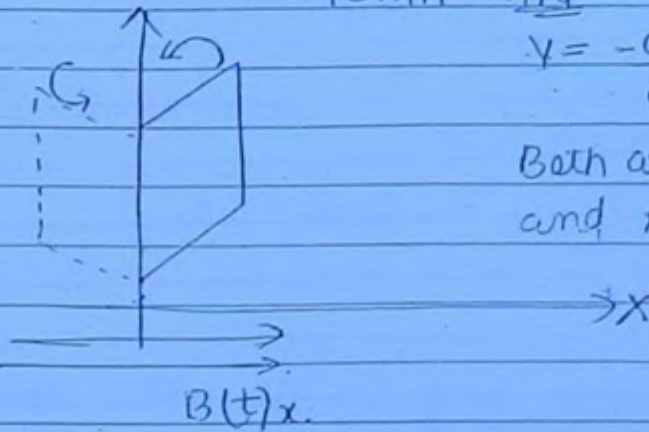 y = -
Both a
and
X
B(t)x.